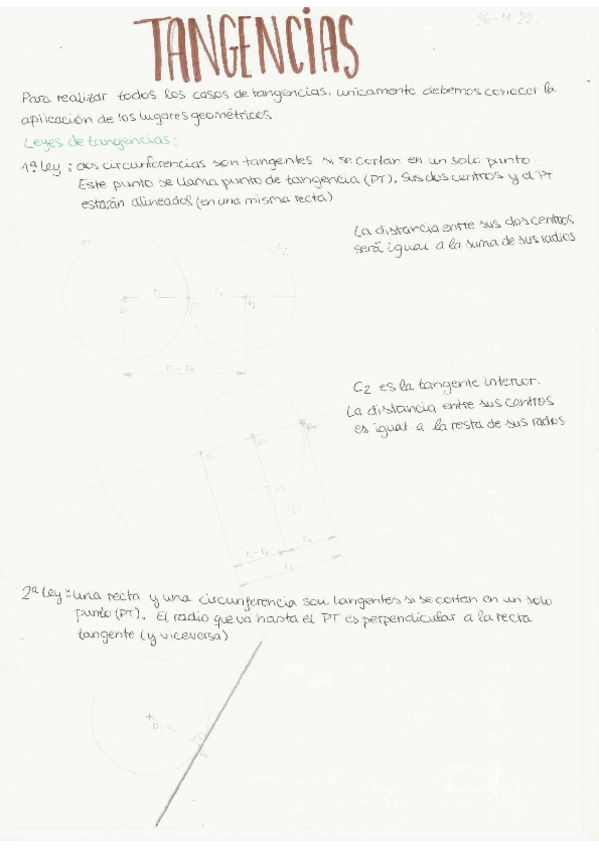 TANGENCIAS
Para realizar todos los casos de tangencias, unicamente debemos conocer la
aplicación de los lugares geométricos.
Leyes de tangencias:
1ª Ley: dos circunferencias son tangentes si se cortan en un solo punto.
Este punto se llama punto de tangencia (PT), sus dos centros y el PT
estarán alineados (en una misma recta)
La distancia entre sus dos centros
será igual a la suma de sus radios
C2
O1
C2 es la tangente interior.
La distancia entre sus centros
es igual a la resta de sus radios
2ª Ley: una recta y una circunferencia son tangentes si se cortan en un solo
punto (PT). El radio que va hasta el PT es perpendicular a la recta
tangente (y viceversa)